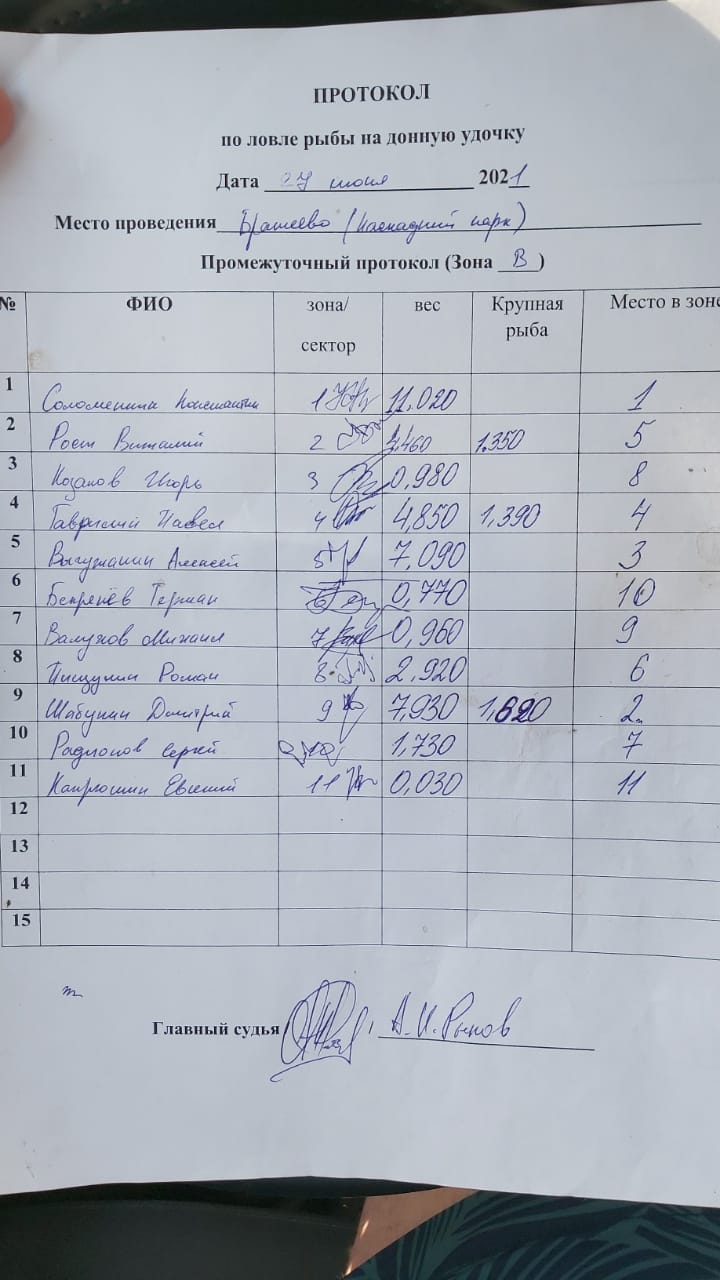 ПРОТОКОЛ
по ловле рыбы на донную удочку
Дата 27 июня 2021
Место проведения Братеево (Каскадный парк)
Промежуточный протокол (Зона В)
№ ФИО зона/ сектор вес Крупная рыба Место в зоне
1 Константин 1 11.020 1
2 Рост Виталий 2 460 1.350 5
3 Козаков Игорь 3 0,980 8
4 Павел 4 4,850 1,390 4
5 Алексей 5 7,090 3
6 Герман 6 0,770 10
7 Михаил 7 0,960 9
8 Роман 8 2.920 6
9 Шабунин Дмитрий 9 7,930 1,620 2
10 Радионов Сергей 1,730 7
11 Евгений 11 0,030 11
12
13
14
15
Главный судья А.И.Рыков